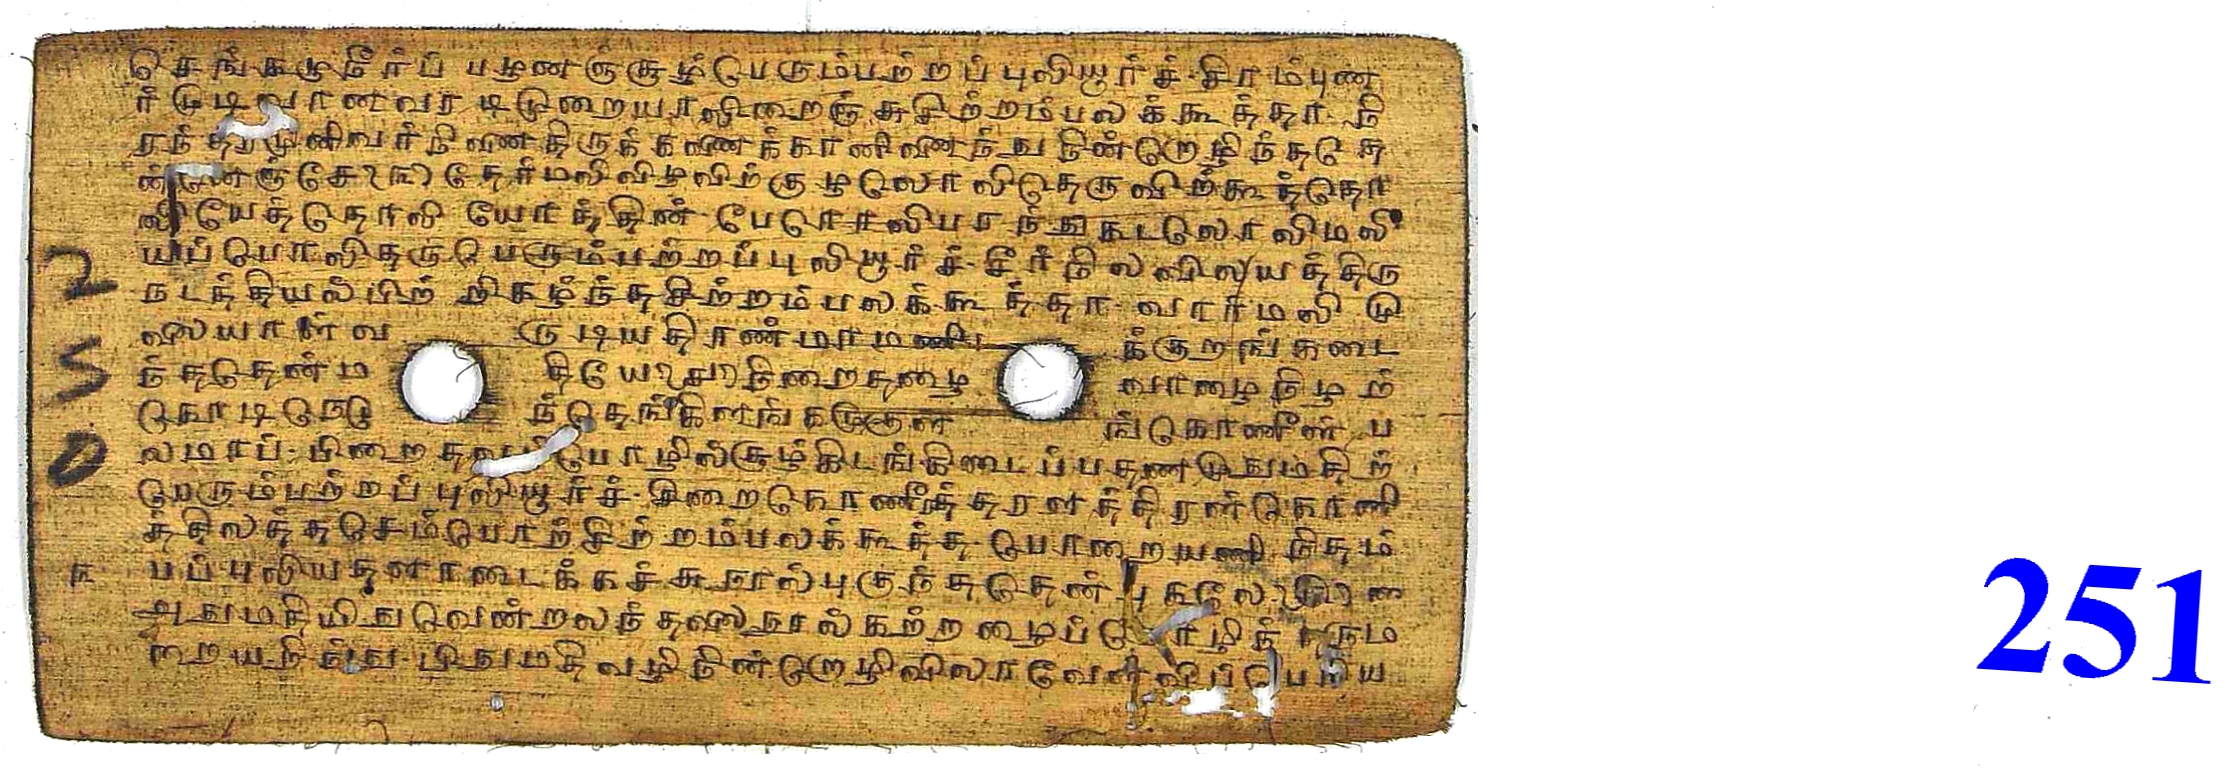 செங்கழுநீர்ப் பழனஞ்சூழ்பெரும்பற்றப்புலியூர்ச்-சிரம்புண
ர்முடிவானவரடிமுறையாலிறைஞ்சுசிற்றம்பலக்கூத்தா-நி
ரந்தரமுனிவர்நினைதிருக்கணைக்கானினைந்துநின்றொழிந்ததெ
ன்னெஞ்சே ௩ தேர்மலிவிழவிற்குழலொலிதெருவிற்கூத்தொ
லியேத்தொலி யோத்தின்-பேரொலிபரந்துகடலொலிமலி
யப்பொலிதருபெரும்பற்றப்புலியூர்ச்-சீர்நிலவிலயத்திரு
நடத்தியல்பிற் றிகழ்ந்தசிற்றம்பலக்கூத்தா-வார்மலி மு
லையாள்வ ருடியதிரண்மாமணி க்குறங்கடை
ந்ததென்ம தியே ௪ நிறைதழை வாழைநிழற்
கொடிநெடு ந்தெங்கிளங்கமுகுள ங்கொணீள் ப
லமாப்-பிறைதவழ்பொழில்சூழ்கிடங்கிடைப்பதணமுதுமதிற்
பெரும்பற்றப்புலியூர்ச்-சிறைகொணீர்த்தரளத்திரள்கொணி
த்திலத்தசெம்பொற்சிற்றம்பலக்கூத்த-பொறையணி நிதம்
பப்புலியதளாடைக்கச்சுநூல்புகுந்ததென்புகலே ௫
அதுமதியிதுவென்றலந்தலைநூல்கற்றழைப்பொழிந்தரும
றையறிந்து-பிதுமதிவழிநின்றொழிவிலாவேள்விப்பெரிய
250
251